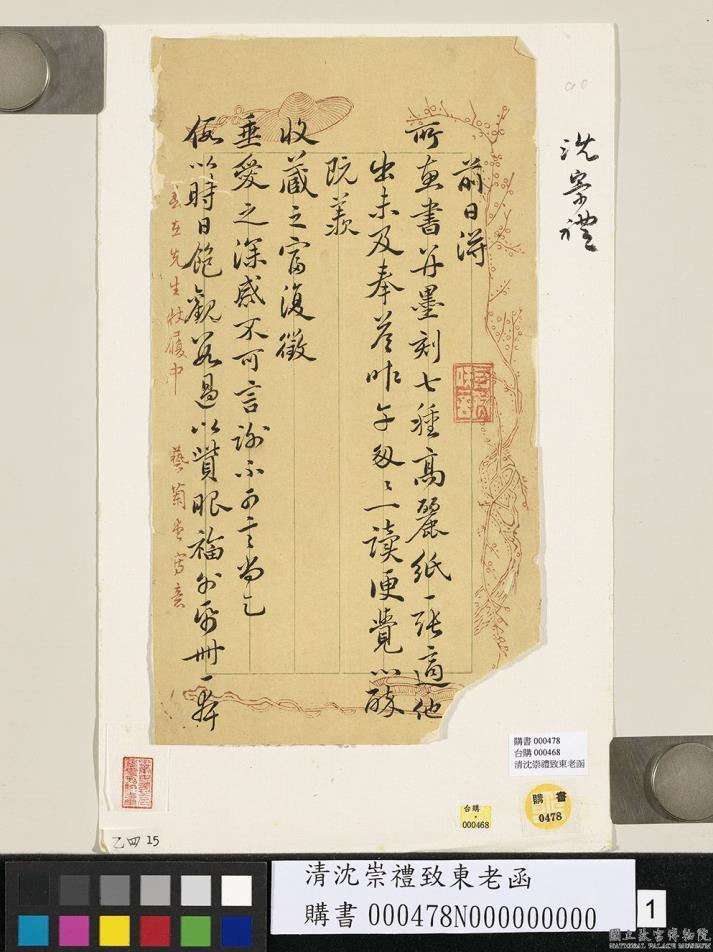 沈崇禮
前日得
所畫書并墨刻七種高麗紙一張適他
出未及奉答昨午匆匆一讀便覺心醉
既羨
收藏之富復徵
垂愛之深感不可言謝不可言尚乞
假以時日飽觀
過以賞眼福
冊一本
先生杖履中
藝菊
寫意
購書 000478
台購 000468
清沈崇禮致東老函
購書
0478
台購
000468
乙四 15
清沈崇禮致東老函
購書 000478N000000000
1
國立故宮博物院
NATIONAL PALACE MUSEUM